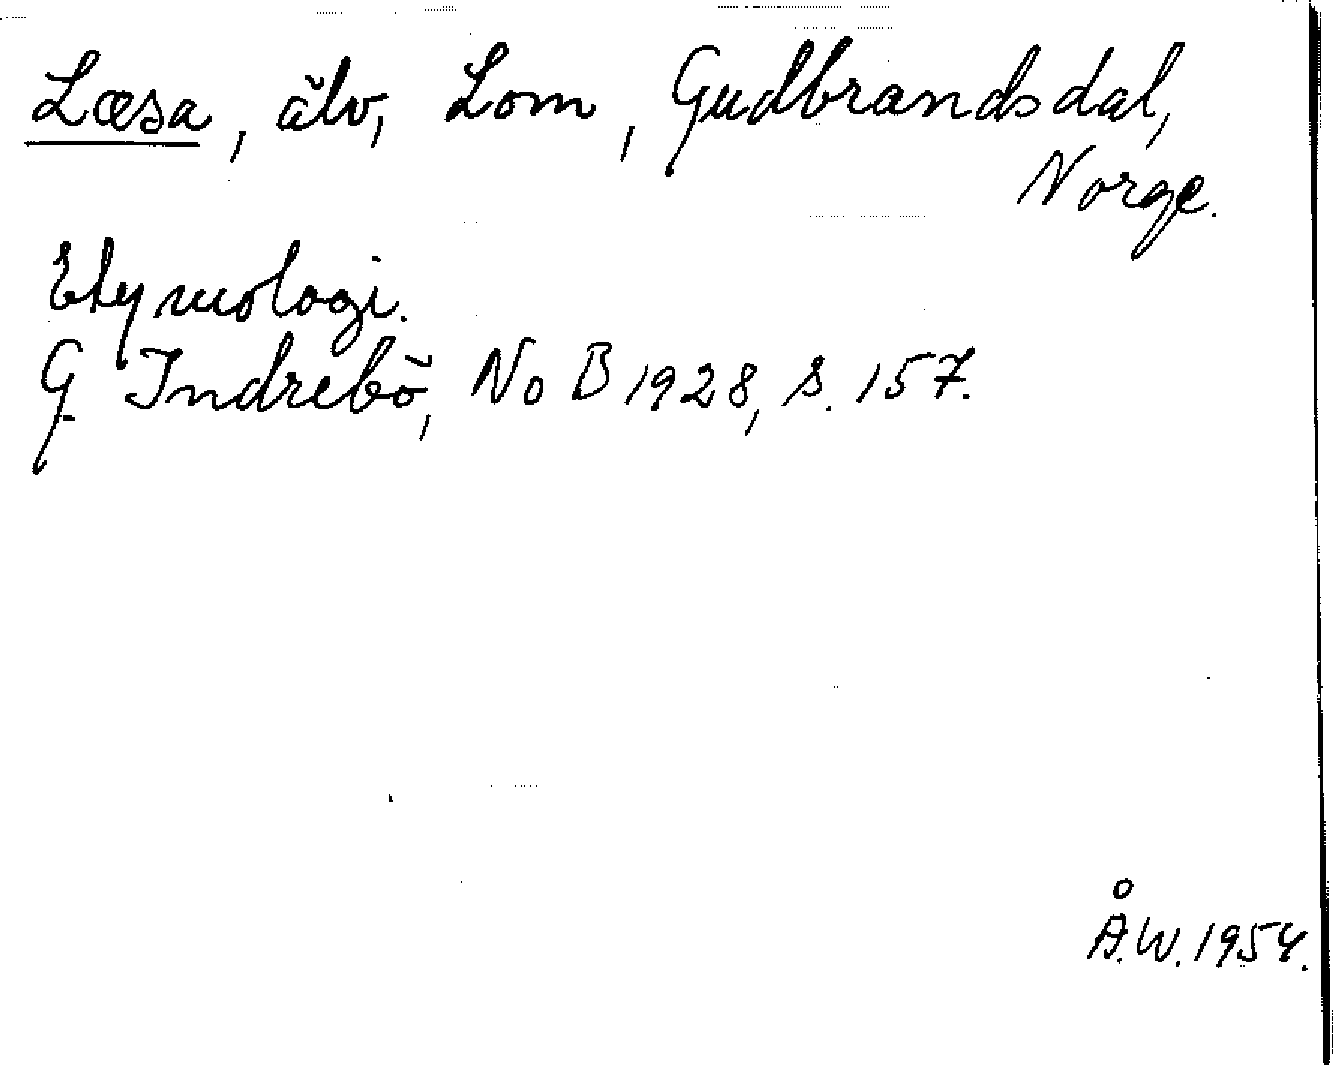 Læsa, älv, Lom, Gudbrandsdal,
Norge.
Etymologi.
G Indrebö, No B 1928, s. 157.
Å.W. 1954.